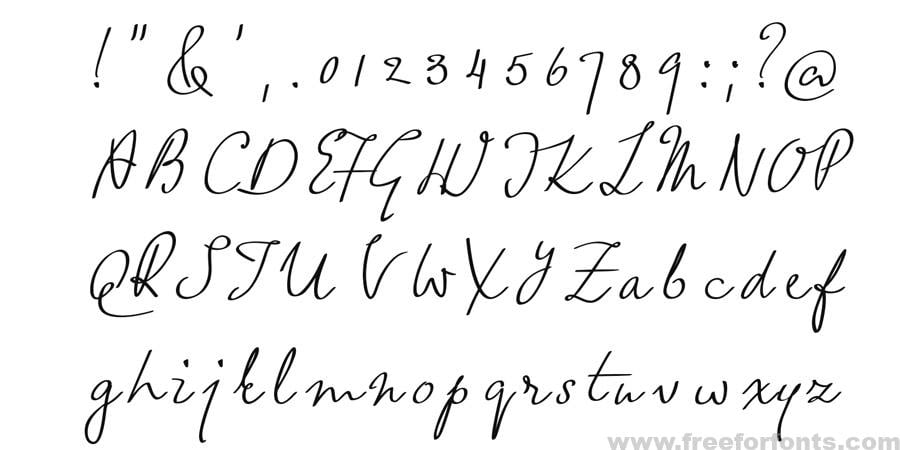 ! " & ' , . 0 1 2 3 4 5 6 7 8 9 : ; ? @
A B C D E F G H I J K L M N O P
Q R S T U V W X Y Z a b c d e f
g h i j k l m n o p q r s t u v w x y z
www.freeforfonts.com